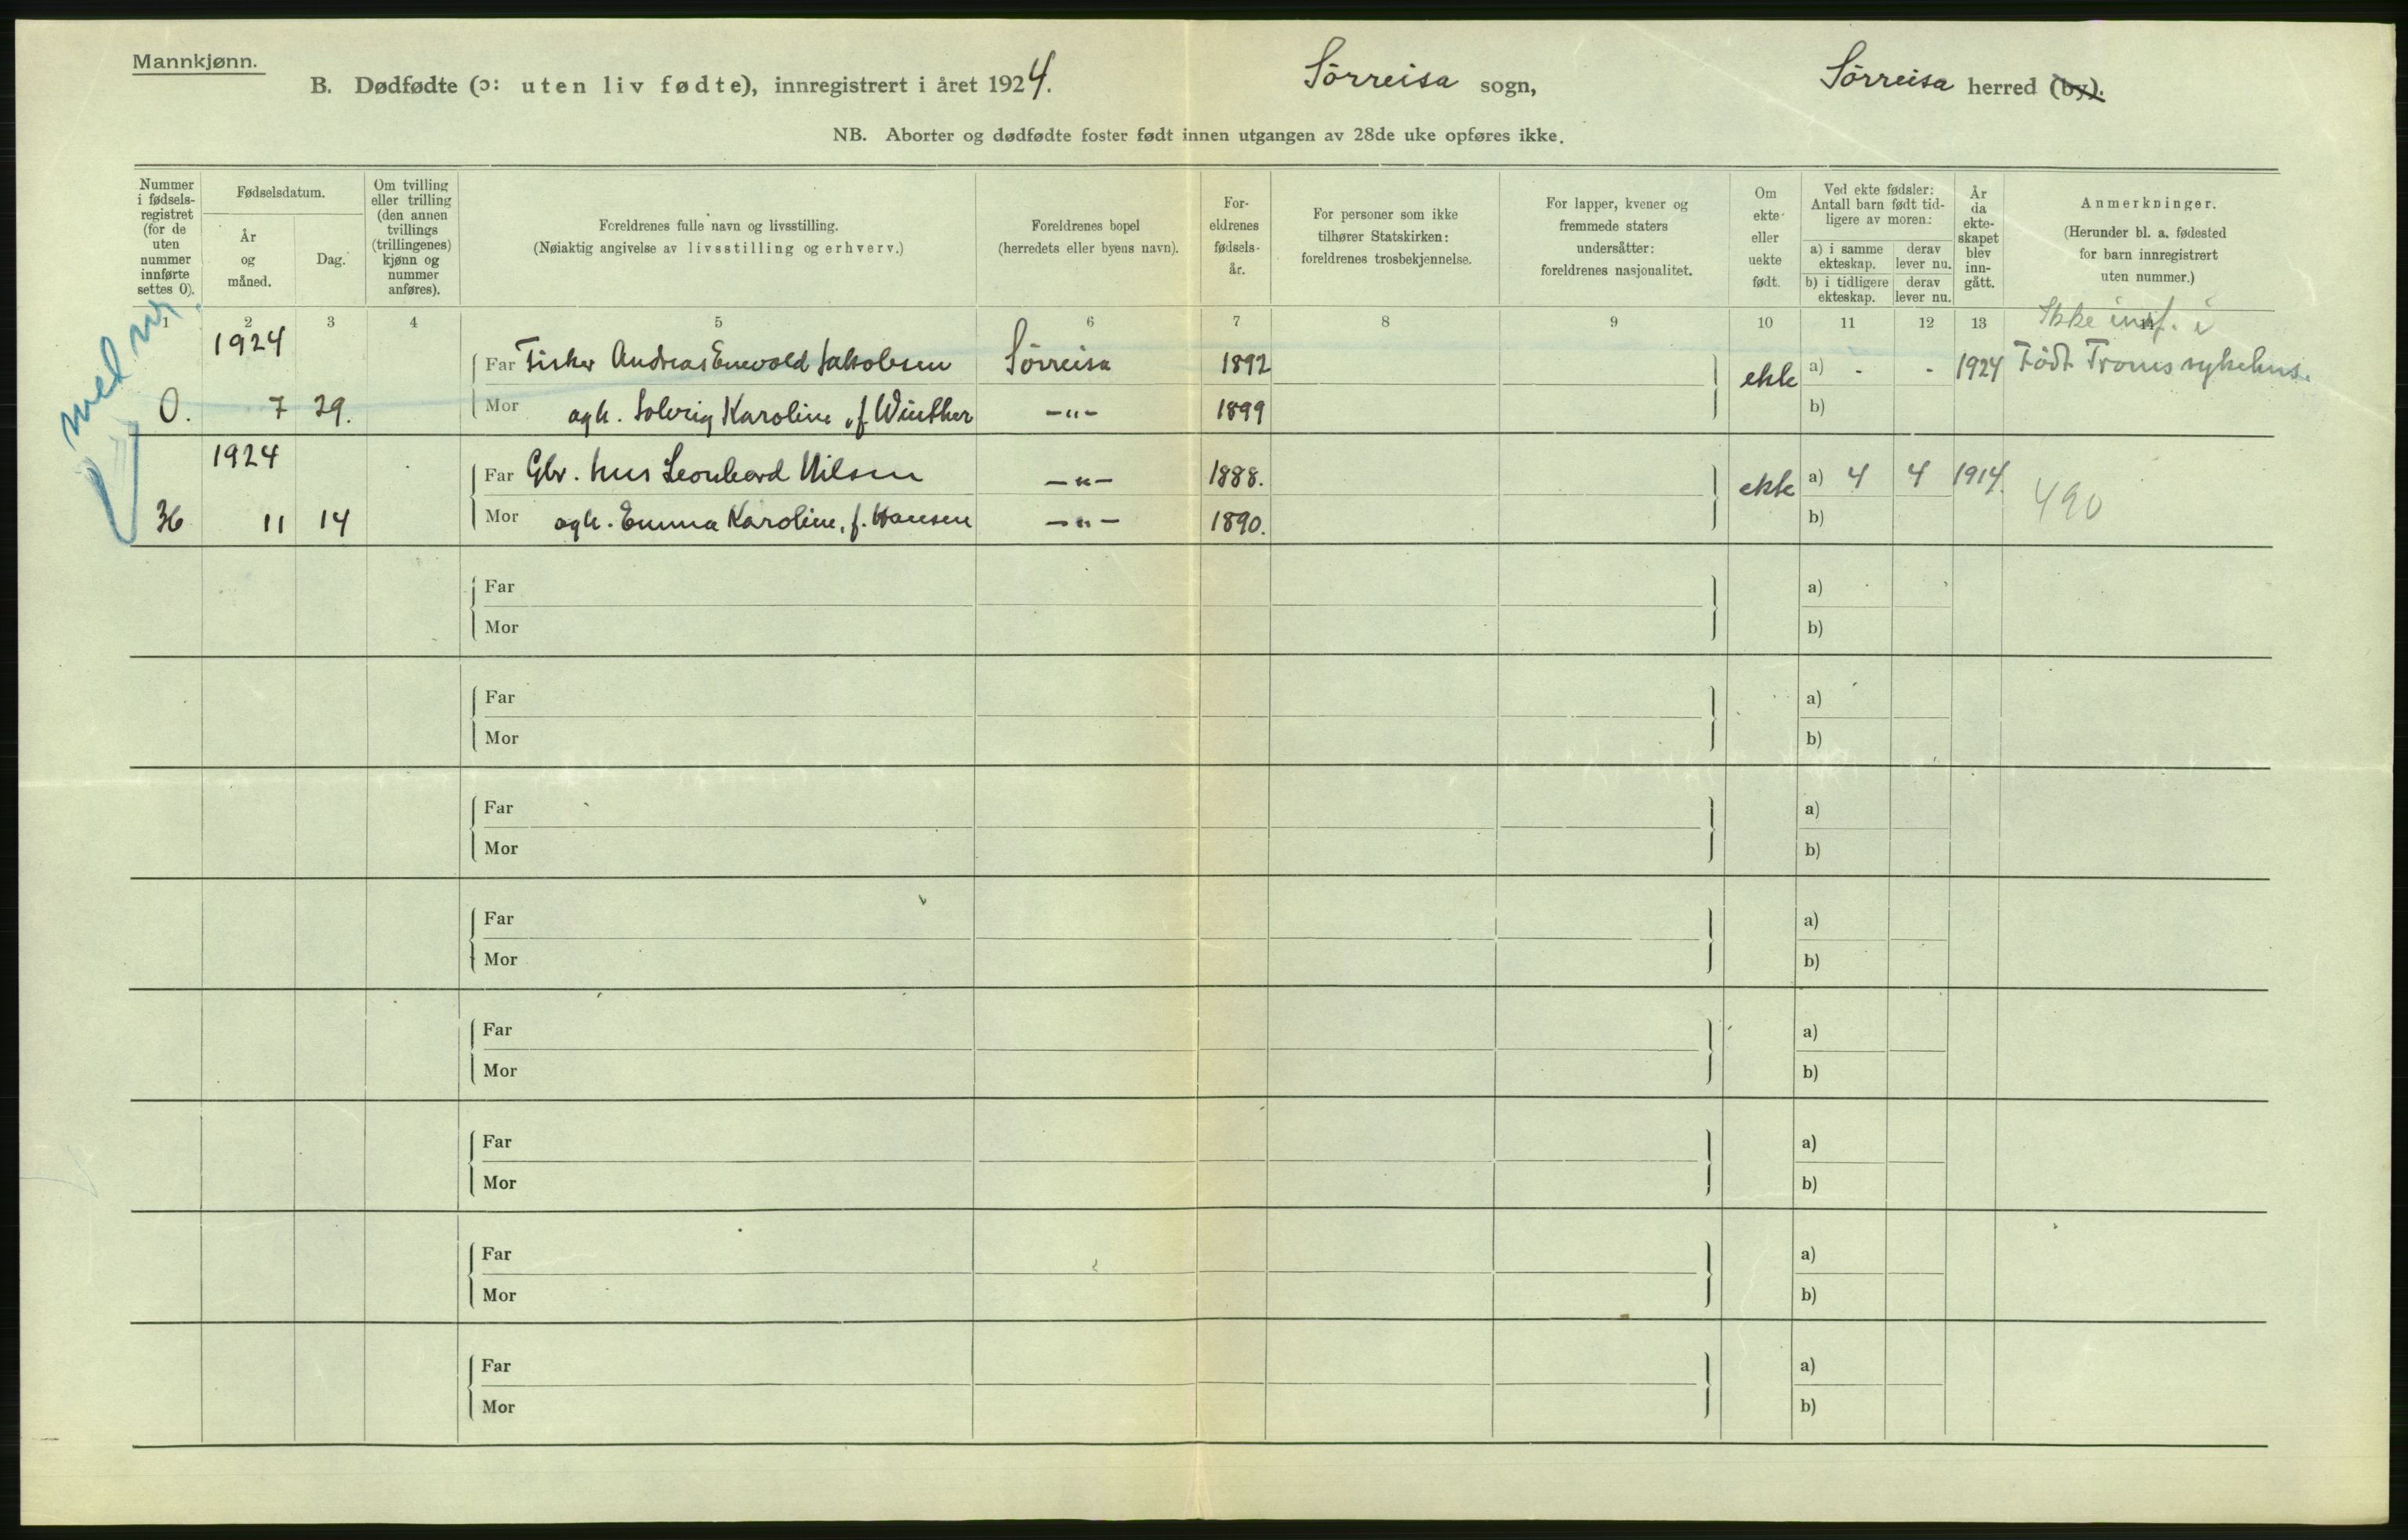 Mannkjønn.
B. Dødfødte (ɔ: uten liv fødte), innregistrert i året 1924. Sørreisa sogn, Sørreisa herred (by).
NB. Aborter og dødfødte foster født innen utgangen av 28de uke opføres ikke.
Nummer i fødsels-registret (for de uten nummer innførte settes 0).
Fødselsdatum.
År og måned.
Dag.
Om tvilling eller trilling (den annen tvillings (trillingenes) kjønn og nummer anføres).
Foreldrenes fulle navn og livsstilling.
(Nøiaktig angivelse av livsstilling og erhverv.)
Foreldrenes bopel
(herredets eller byens navn).
For-eldrenes fødsels-år.
For personer som ikke tilhører Statskirken: foreldrenes trosbekjennelse.
For lapper, kvener og fremmede staters undersåtter: foreldrenes nasjonalitet.
Om ekte eller uekte født.
Ved ekte fødsler: Antall barn født tid-ligere av moren:
a) i samme ekteskap. derav lever nu.
b) i tidligere ekteskap. derav lever nu.
År da ekte-skapet blev inn-gått.
Anmerkninger.
(Herunder bl. a. fødested for barn innregistrert uten nummer.)
med nr.
1 2 3 4 5 6 7 8 9 10 11 12 13
Ikke innf. i
1924
Far Fisker Andreas Enevold Jakobsen Sørreisa 1892 ekte a) - - 1924 Født Troms sykehus.
0. 7 29. Mor agh. Solveig Karoline, f. Winther -"- 1899 b)
1924
Far Gbr. hus Leonhard Nilsen -"- 1888. ekte a) 4 4 1914. 490
36 11 14 Mor agh. Emma Karoline, f. Hansen -"- 1890. b)
Far a)
Mor b)
Far a)
Mor b)
Far a)
Mor b)
Far a)
Mor b)
Far a)
Mor b)
Far a)
Mor b)
Far a)
Mor b)
Far a)
Mor b)